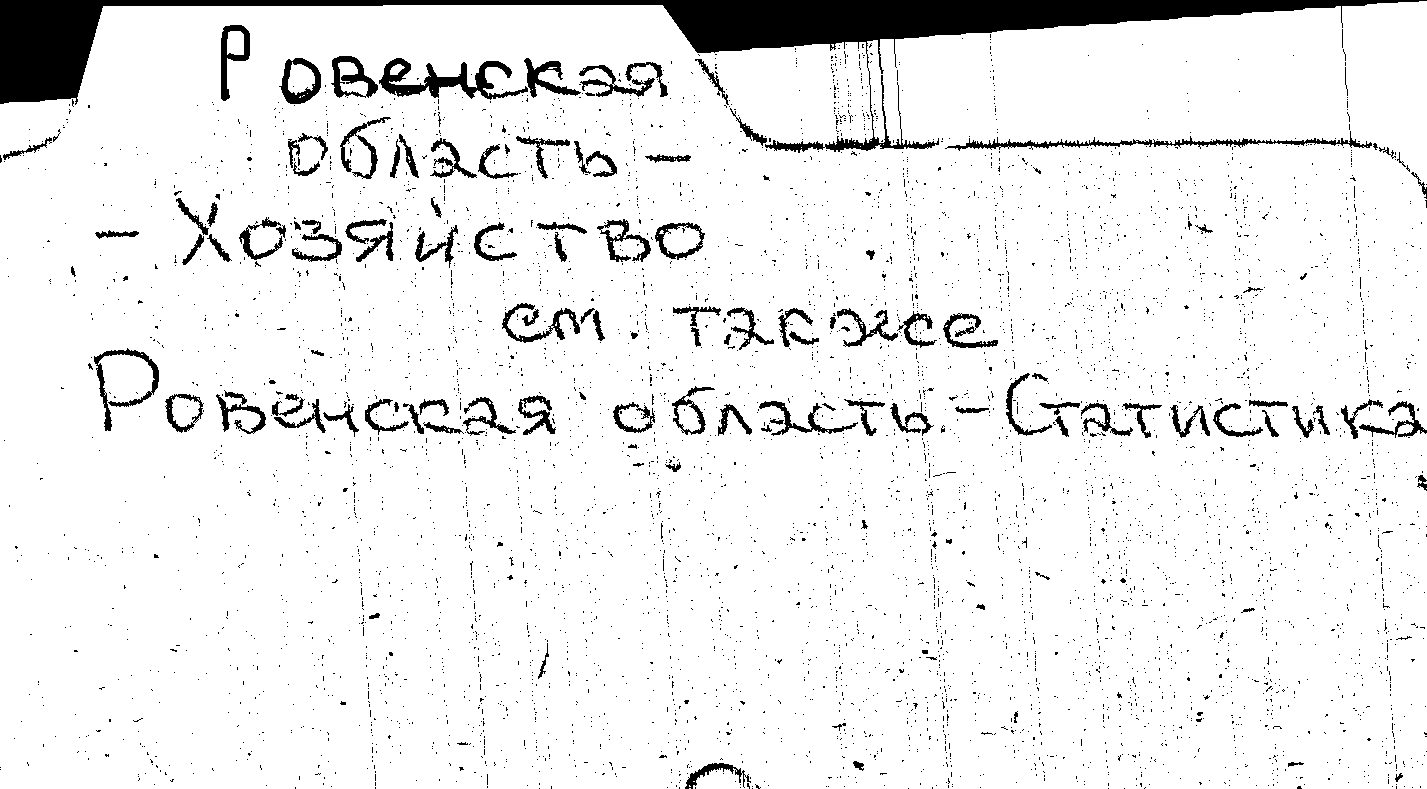 Ровенская
область –
– Хозяйство
см. также
Ровенская область – Статистика